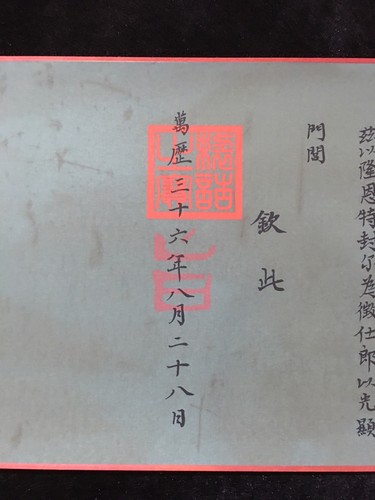 茲以隆恩特封尔為徵仕郎以光顯
門閭
欽此
萬歷三十六年八月二十八日